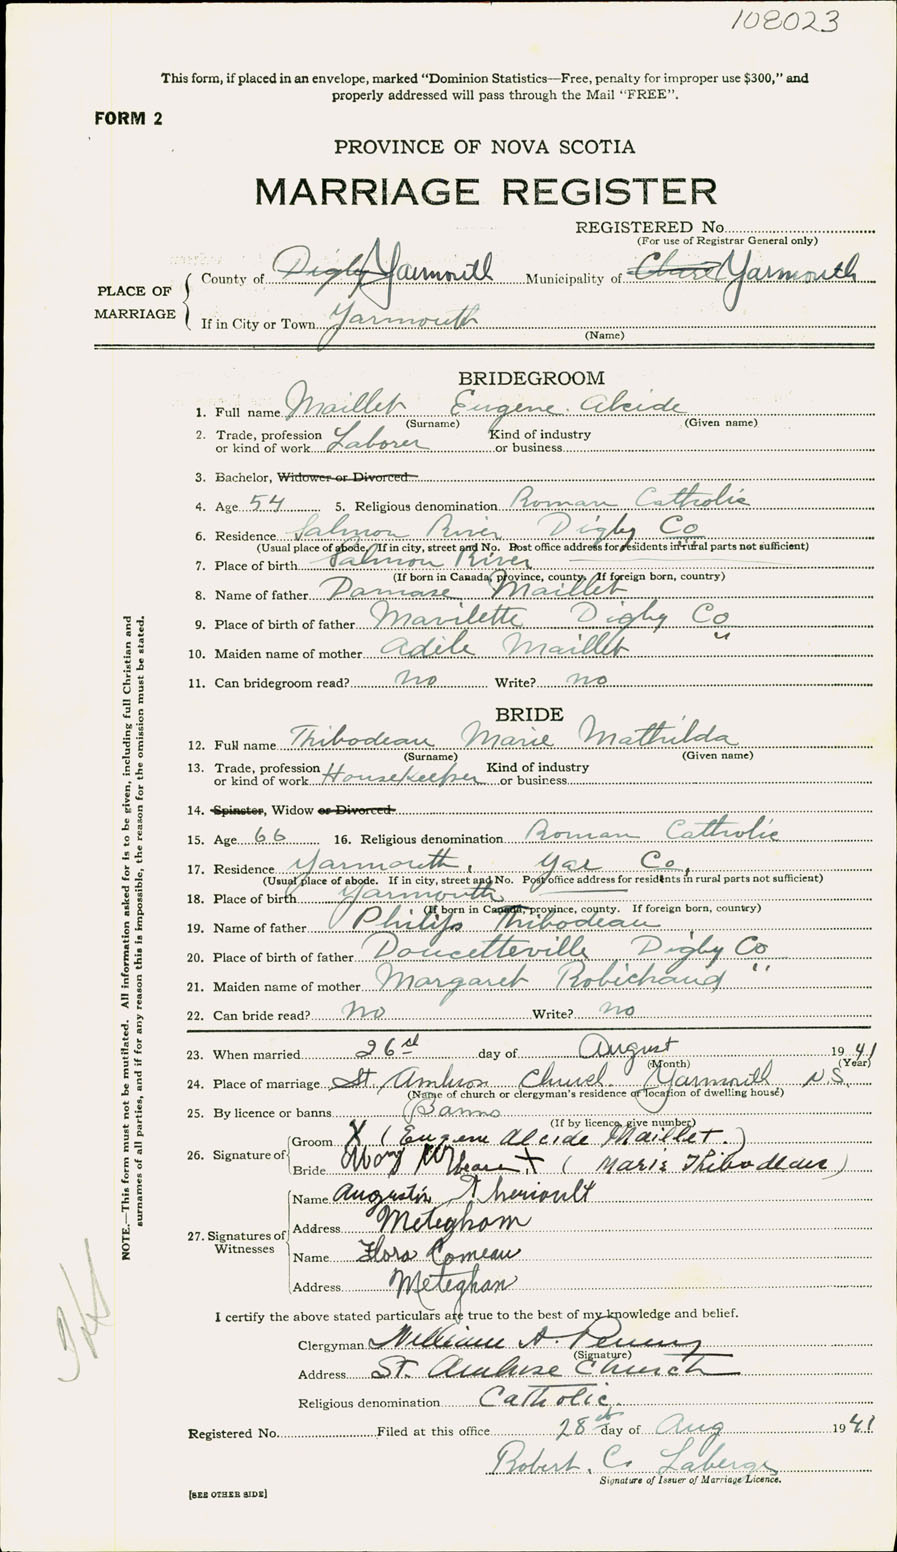 108023
This form, if placed in an envelope, marked “Dominion Statistics—Free, penalty for improper use $300,” and
properly addressed will pass through the Mail “FREE”.
FORM 2
PROVINCE OF NOVA SCOTIA
MARRIAGE REGISTER
REGISTERED No.
(For use of Registrar General only)
PLACE OF MARRIAGE
County of Digby Yarmouth Municipality of Clare Yarmouth
If in City or Town Yarmouth
(Name)
BRIDEGROOM
1. Full name Maillet Eugene Alcide
(Surname) (Given name)
2. Trade, profession or kind of work Laborer Kind of industry or business
3. Bachelor, Widower or Divorced
4. Age 54 5. Religious denomination Roman Catholic
6. Residence Salmon River Digby Co
(Usual place of abode. If in city, street and No. Post office address for residents in rural parts not sufficient)
7. Place of birth Salmon River
(If born in Canada, province, county. If foreign born, country)
8. Name of father Damase Maillet
9. Place of birth of father Mavilette Digby Co
10. Maiden name of mother Adele Maillet "
11. Can bridegroom read? no Write? no
BRIDE
12. Full name Thibodeau Marie Mathilda
(Surname) (Given name)
13. Trade, profession or kind of work Housekeeper Kind of industry or business
14. Spinster, Widow or Divorced
15. Age 66 16. Religious denomination Roman Catholic
17. Residence Yarmouth, Yar Co,
(Usual place of abode. If in city, street and No. Post office address for residents in rural parts not sufficient)
18. Place of birth Yarmouth
(If born in Canada, province, county. If foreign born, country)
19. Name of father Philip Thibodeau
20. Place of birth of father Doucetteville Digby Co
21. Maiden name of mother Margaret Robichaud "
22. Can bride read? no Write? no
23. When married 26st day of August 1941
(Month) (Year)
24. Place of marriage St. Ambros Church Yarmouth N S.
(Name of church or clergyman's residence or location of dwelling house)
25. By licence or banns Banns
(If by licence, give number)
26. Signature of
Groom X (Eugene Alcide Maillet.)
Bride X (Marie Thibodeau)
27. Signatures of Witnesses
Name Augustin Theriault
Address Meteghan
Name Flora Comeau
Address Meteghan
I certify the above stated particulars are true to the best of my knowledge and belief.
Clergyman William A. Penny
(Signature)
Address St. Ambrose Church
Religious denomination Catholic.
Registered No. Filed at this office 28th day of Aug 1941
Robert. C. Laberge
Signature of Issuer of Marriage Licence.
[SEE OTHER SIDE]
NOTE.—This form must not be mutilated. All information asked for is to be given, including full Christian and
surnames of all parties, and if for any reason this is impossible, the reason for the omission must be stated.